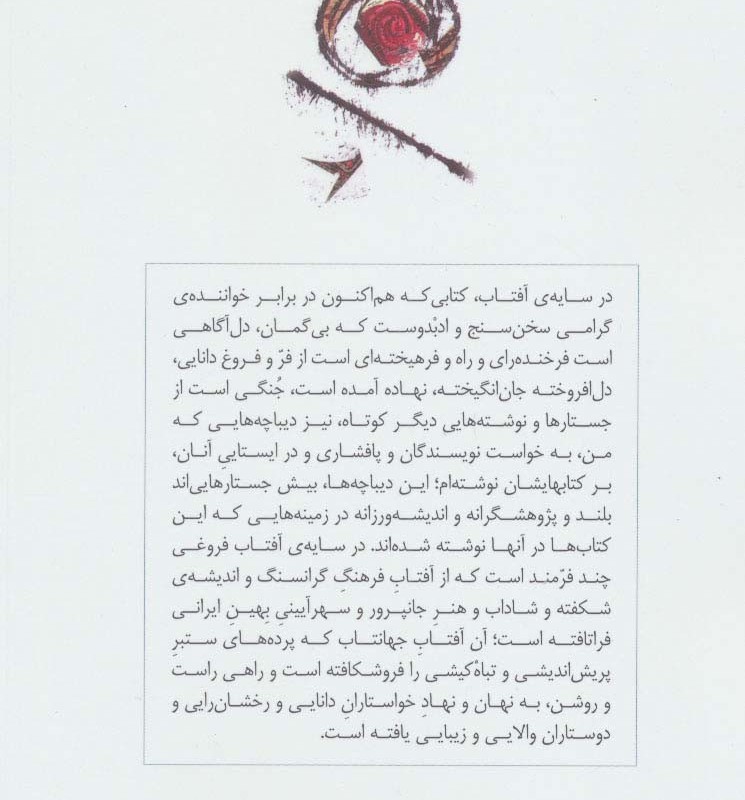 در سایه‌ی آفتاب، کتابی‌که هم‌اکنون در برابر خواننده‌ی
گرامی سخن‌سنج و ادبْدوست که بی‌گمان، دل‌آگاهی
است فرخنده‌رای و راه و فرهیخته‌ای است از فرّ و فروغ دانایی،
دل‌افروخته جان‌انگیخته، نهاده آمده است، جُنگی است از
جستارها و نوشته‌هایی دیگر کوتاه، نیز دیباچه‌هایی که
من، به خواست نویسندگان و پافشاری و در ایستاییِ آنان،
بر کتابهایشان نوشته‌ام؛ این دیباچه‌ها، بیش جستارهایی‌اند
بلند و پژوهشگرانه و اندیشه‌ورزانه در زمینه‌هایی که این
کتاب‌ها در آنها نوشته شده‌اند. در سایه‌ی آفتاب فروغی
چند فرّمند است که از آفتابِ فرهنگِ گرانسنگ و اندیشه‌ی
شکفته و شاداب و هنرِ جانپرور و سهرآیینیِ بِهینِ ایرانی
فراتافته است؛ آن آفتابِ جهانتاب که پرده‌های ستبرِ
پریش‌اندیشی و تباهْ‌کیشی را فروشکافته است و راهی راست
و روشن، به نهان و نهادِ خواستارانِ دانایی و رخشان‌رایی و
دوستاران والایی و زیبایی یافته است.